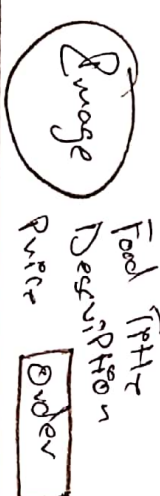 Image
Food Title
Description
Price
Order